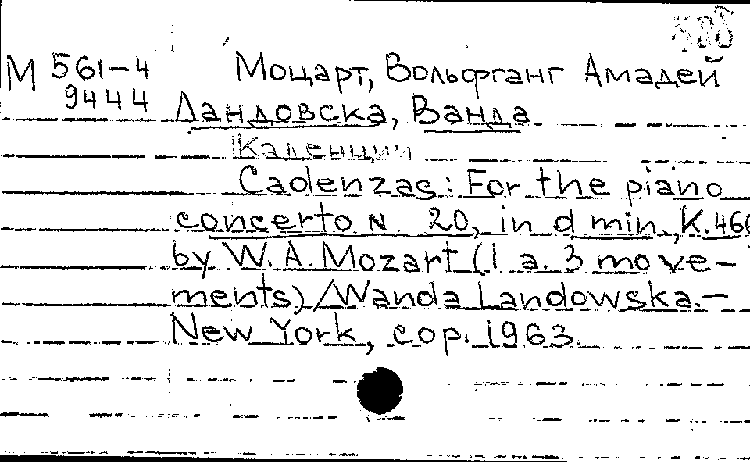 М 561-4
9444
Моцарт, Вольфганг Амадей
Ландовска, Ванда
Каденции
Cadenzas: For the piano
concerto N 20, in d min., K.466
by W. A. Mozart (1 a. 3 move-
ments) / Wanda Landowska. –
New York, cop. 1963.